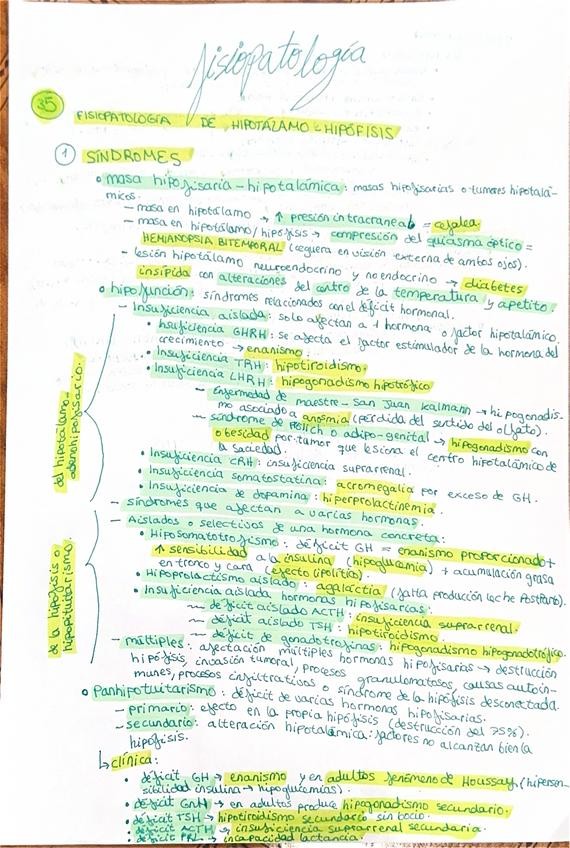 fisiopatología
35
FISIOPATOLOGÍA DE HIPOTÁLAMO-HIPÓFISIS
1 SÍNDROMES
• masa hipofisaria-hipotalámica: masas hipofisarias o tumores hipotalá-
micos.
— masa en hipotálamo → ↑ presión intracraneal = cefalea
— masa en hipotálamo/hipófisis → compresión del quiasma óptico =
HEMIANOPSIA BITEMPORAL (ceguera en visión externa de ambos ojos).
— lesión hipotálamo neuroendocrino y no endocrino → diabetes
insípida con alteraciones del centro de la temperatura y apetito.
• hipofunción: síndromes relacionados con el déficit hormonal.
— Insuficiencia aislada: solo afectan a 1 hormona o factor hipotalámico
• Insuficiencia GHRH: se afecta el factor estimulador de la hormona del
crecimiento → enanismo.
• Insuficiencia TRH: hipotiroidismo.
• Insuficiencia LHRH: hipogonadismo hipotrófico
— Enfermedad de maestre-San Juan Kalmann → hipogonadis-
mo asociado a anosmia (pérdida del sentido del olfato).
— síndrome de Frölich o adipo-genital → hipogonadismo con
obesidad por tumor que lesiona el centro hipotalámico de
la saciedad.
• Insuficiencia CRH: insuficiencia suprarrenal.
• Insuficiencia somatostatina: acromegalia por exceso de GH.
• Insuficiencia de dopamina: hiperprolactinemia.
del hipotálamo-
adenohipofisario.
— síndromes que afectan a varias hormonas.
— Aislados o selectivos de una hormona concreta:
• Hiposomatotrofismo: déficit GH = enanismo proporcionado +
↑ sensibilidad a la insulina (hipoglucemia) + acumulación grasa
en tronco y cara (efecto lipolítico).
• Hipoprolactismo aislado: agalactia (falta producción leche postparto).
• Insuficiencia aislada hormonas hipofisarias:
— déficit aislado ACTH: insuficiencia suprarrenal.
— déficit aislado TSH: hipotiroidismo.
— déficit de gonadotrofinas: hipogonadismo hipogonadotrófico.
de la hipófisis o
hipopituitarismo.
— múltiples: afectación múltiples hormonas hipofisarias → destrucción
hipófisis, invasión tumoral, procesos granulomatosos, causas autoin-
munes, procesos infiltrativos o síndrome de la hipófisis desconectada.
• Panhipotuitarismo: déficit de varias hormonas hipofisarias.
— primario: efecto en la propia hipófisis (destrucción del 75%).
— secundario: alteración hipotalámica: factores no alcanzan bien la
hipófisis.
↳ clínica:
• déficit GH → enanismo y en adultos fenómeno de Houssay, (hipersen-
sibilidad insulina → hipoglucemias).
• déficit GnH → en adultos produce hipogonadismo secundario.
• déficit TSH → hipotiroidismo secundario sin bocio.
• déficit ACTH → insuficiencia suprarrenal secundaria.
• déficit PRL → incapacidad lactancia.